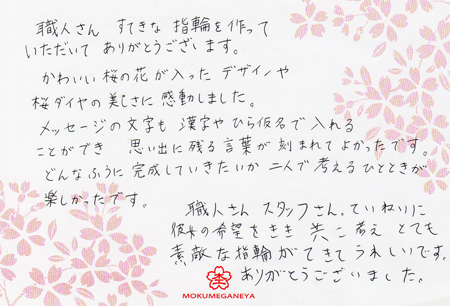 職人さん すてきな 指輪を作って
いただいて ありがとうございます。
かわいい桜の花が入った デザインや
桜ダイヤの美しさに感動しました。
メッセージの文字も 漢字やひら仮名で入れる
ことができ 思い出に残る言葉が刻まれてよかったです。
どんなふうに完成していきたいか 二人で考えるひとときが
楽しかったです。
職人さん スタッフさん、ていねいに
彼の希望をきき 共に考え とても
素敵な指輪ができてうれしいです。
ありがとうございました。
MOKUMEGANEYA